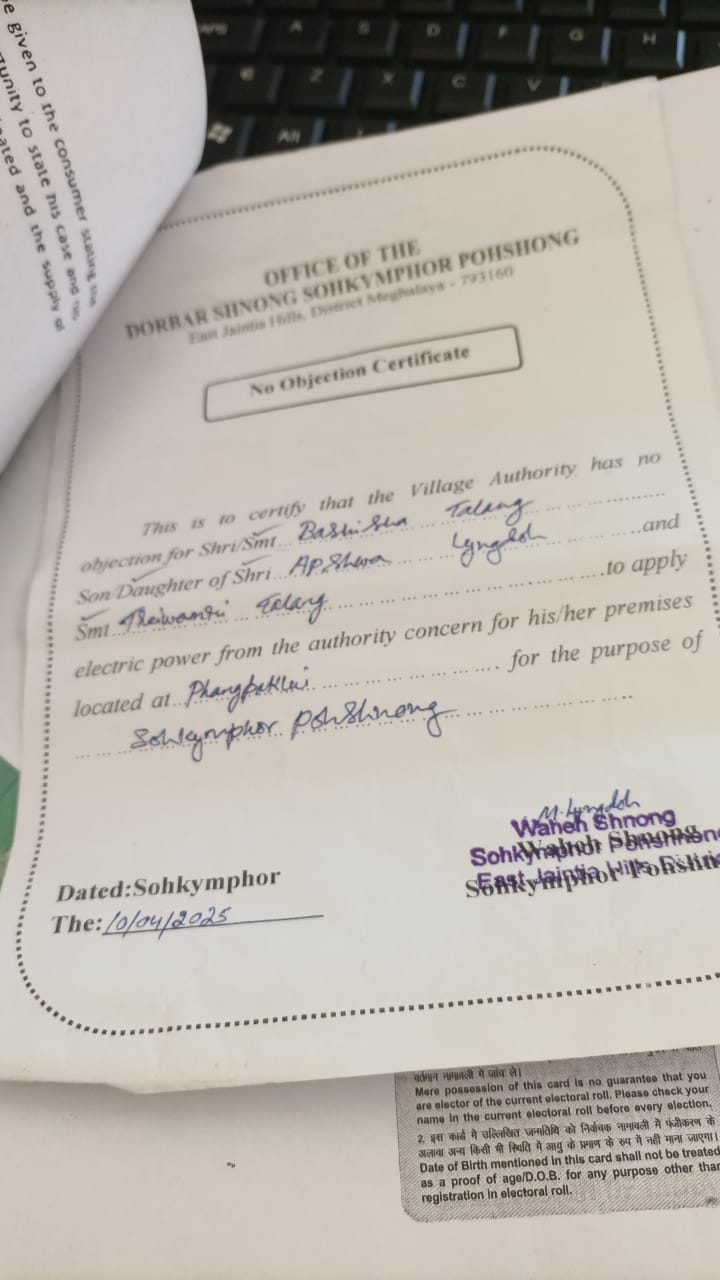 e given to the consumer stating the
unity to state his case and
ated and the supply of
A
S
D
F
G
H
Z
X
C
V
Alt
OFFICE OF THE
DORBAR SHNONG SOHKYMPHOR POHSHONG
East Jaintia Hills, District Meghalaya - 793160
No Objection Certificate
This is to certify that the Village Authority has no
objection for Shri/Smt Talang
Son/Daughter of Shri Lyngdoh and
Smt Talang to apply
electric power from the authority concern for his/her premises
located at for the purpose of
Sohkymphor Pohshnong
M. Lyngdoh
Waheh Shnong
Sohkymphor Pohshnong
East Jaintia Hills Distric
Waheh Shnong
Sohkymphor Pohshn
Dated:Sohkymphor
The: 10/04/2025
वर्तमान नामावली में जांच लें।
Mere possession of this card is no guarantee that you
are elector of the current electoral roll. Please check your
name in the current electoral roll before every election.
2. इस कार्ड में उल्लिखित जन्मतिथि को निर्वाचक नामावली में पंजीकरण के
अलावा अन्य किसी भी स्थिति में आयु के प्रमाण के रुप में नहीं माना जाएगा।
Date of Birth mentioned in this card shall not be treated
as a proof of age/D.O.B. for any purpose other than
registration in electoral roll.